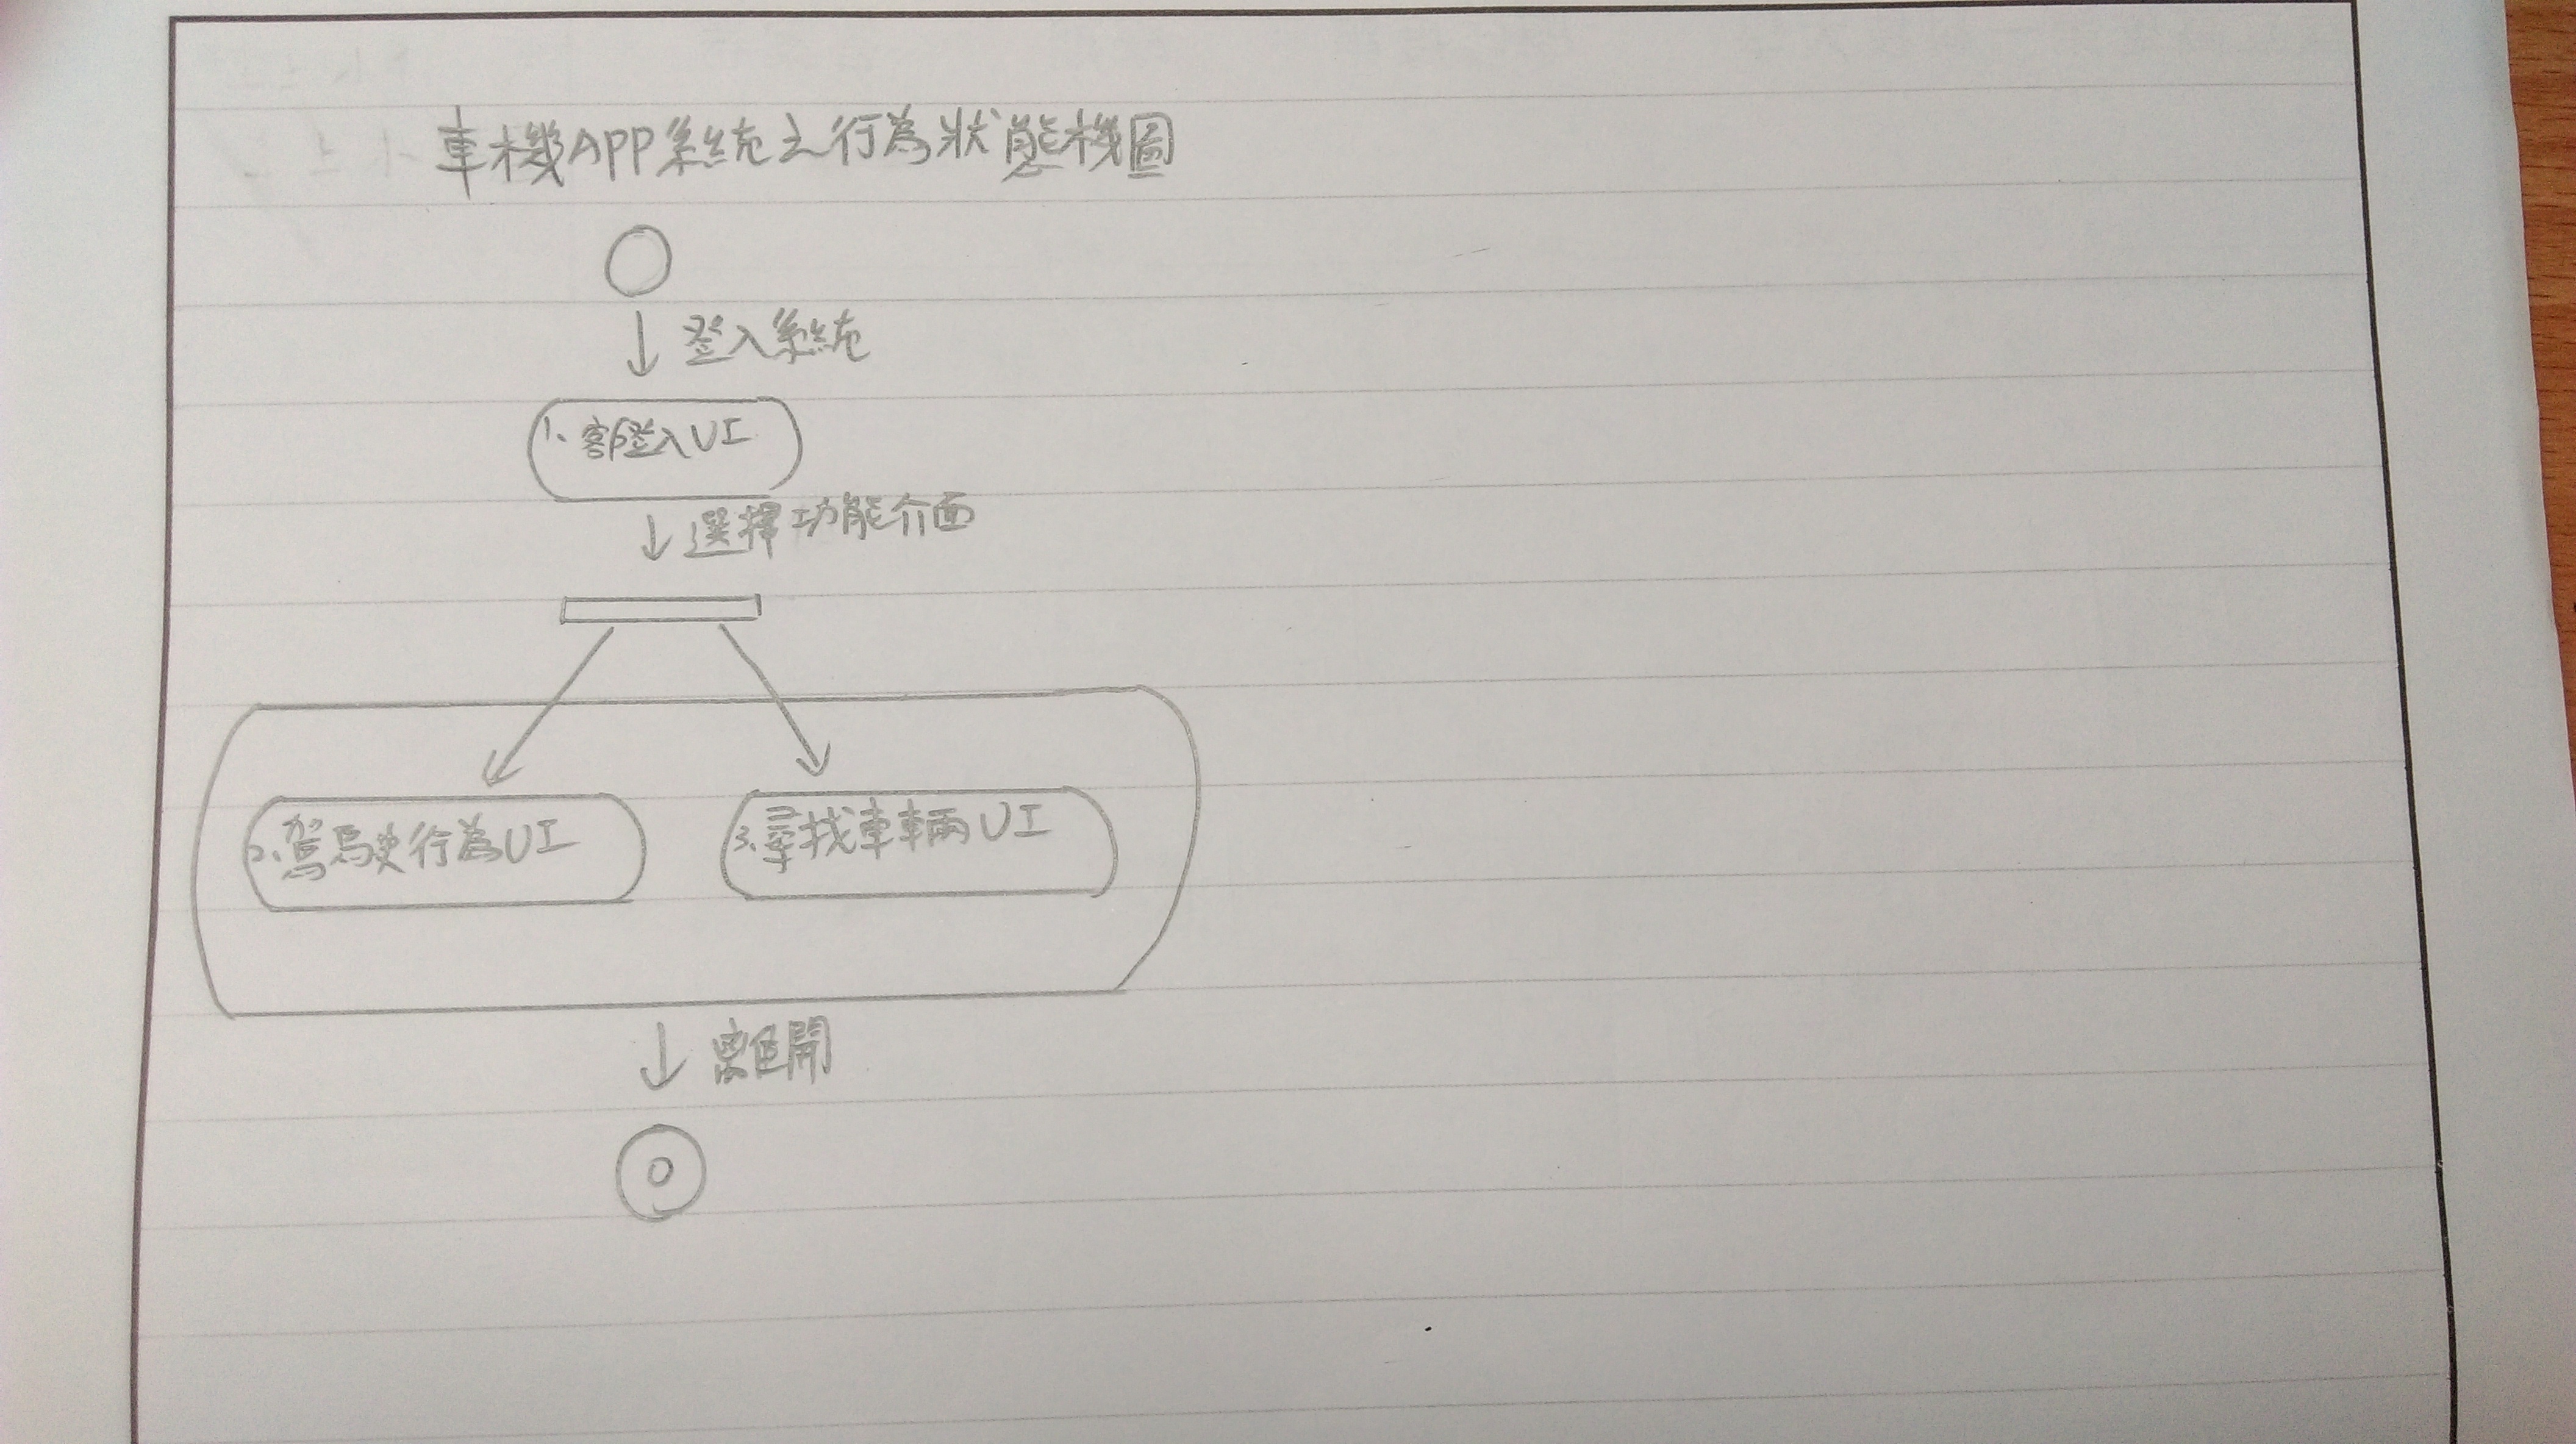 車機APP系統之行為狀態機圖
登入系統
1、客戶登入UI
選擇功能介面
2、駕駛行為UI
3、尋找車輛UI
離開